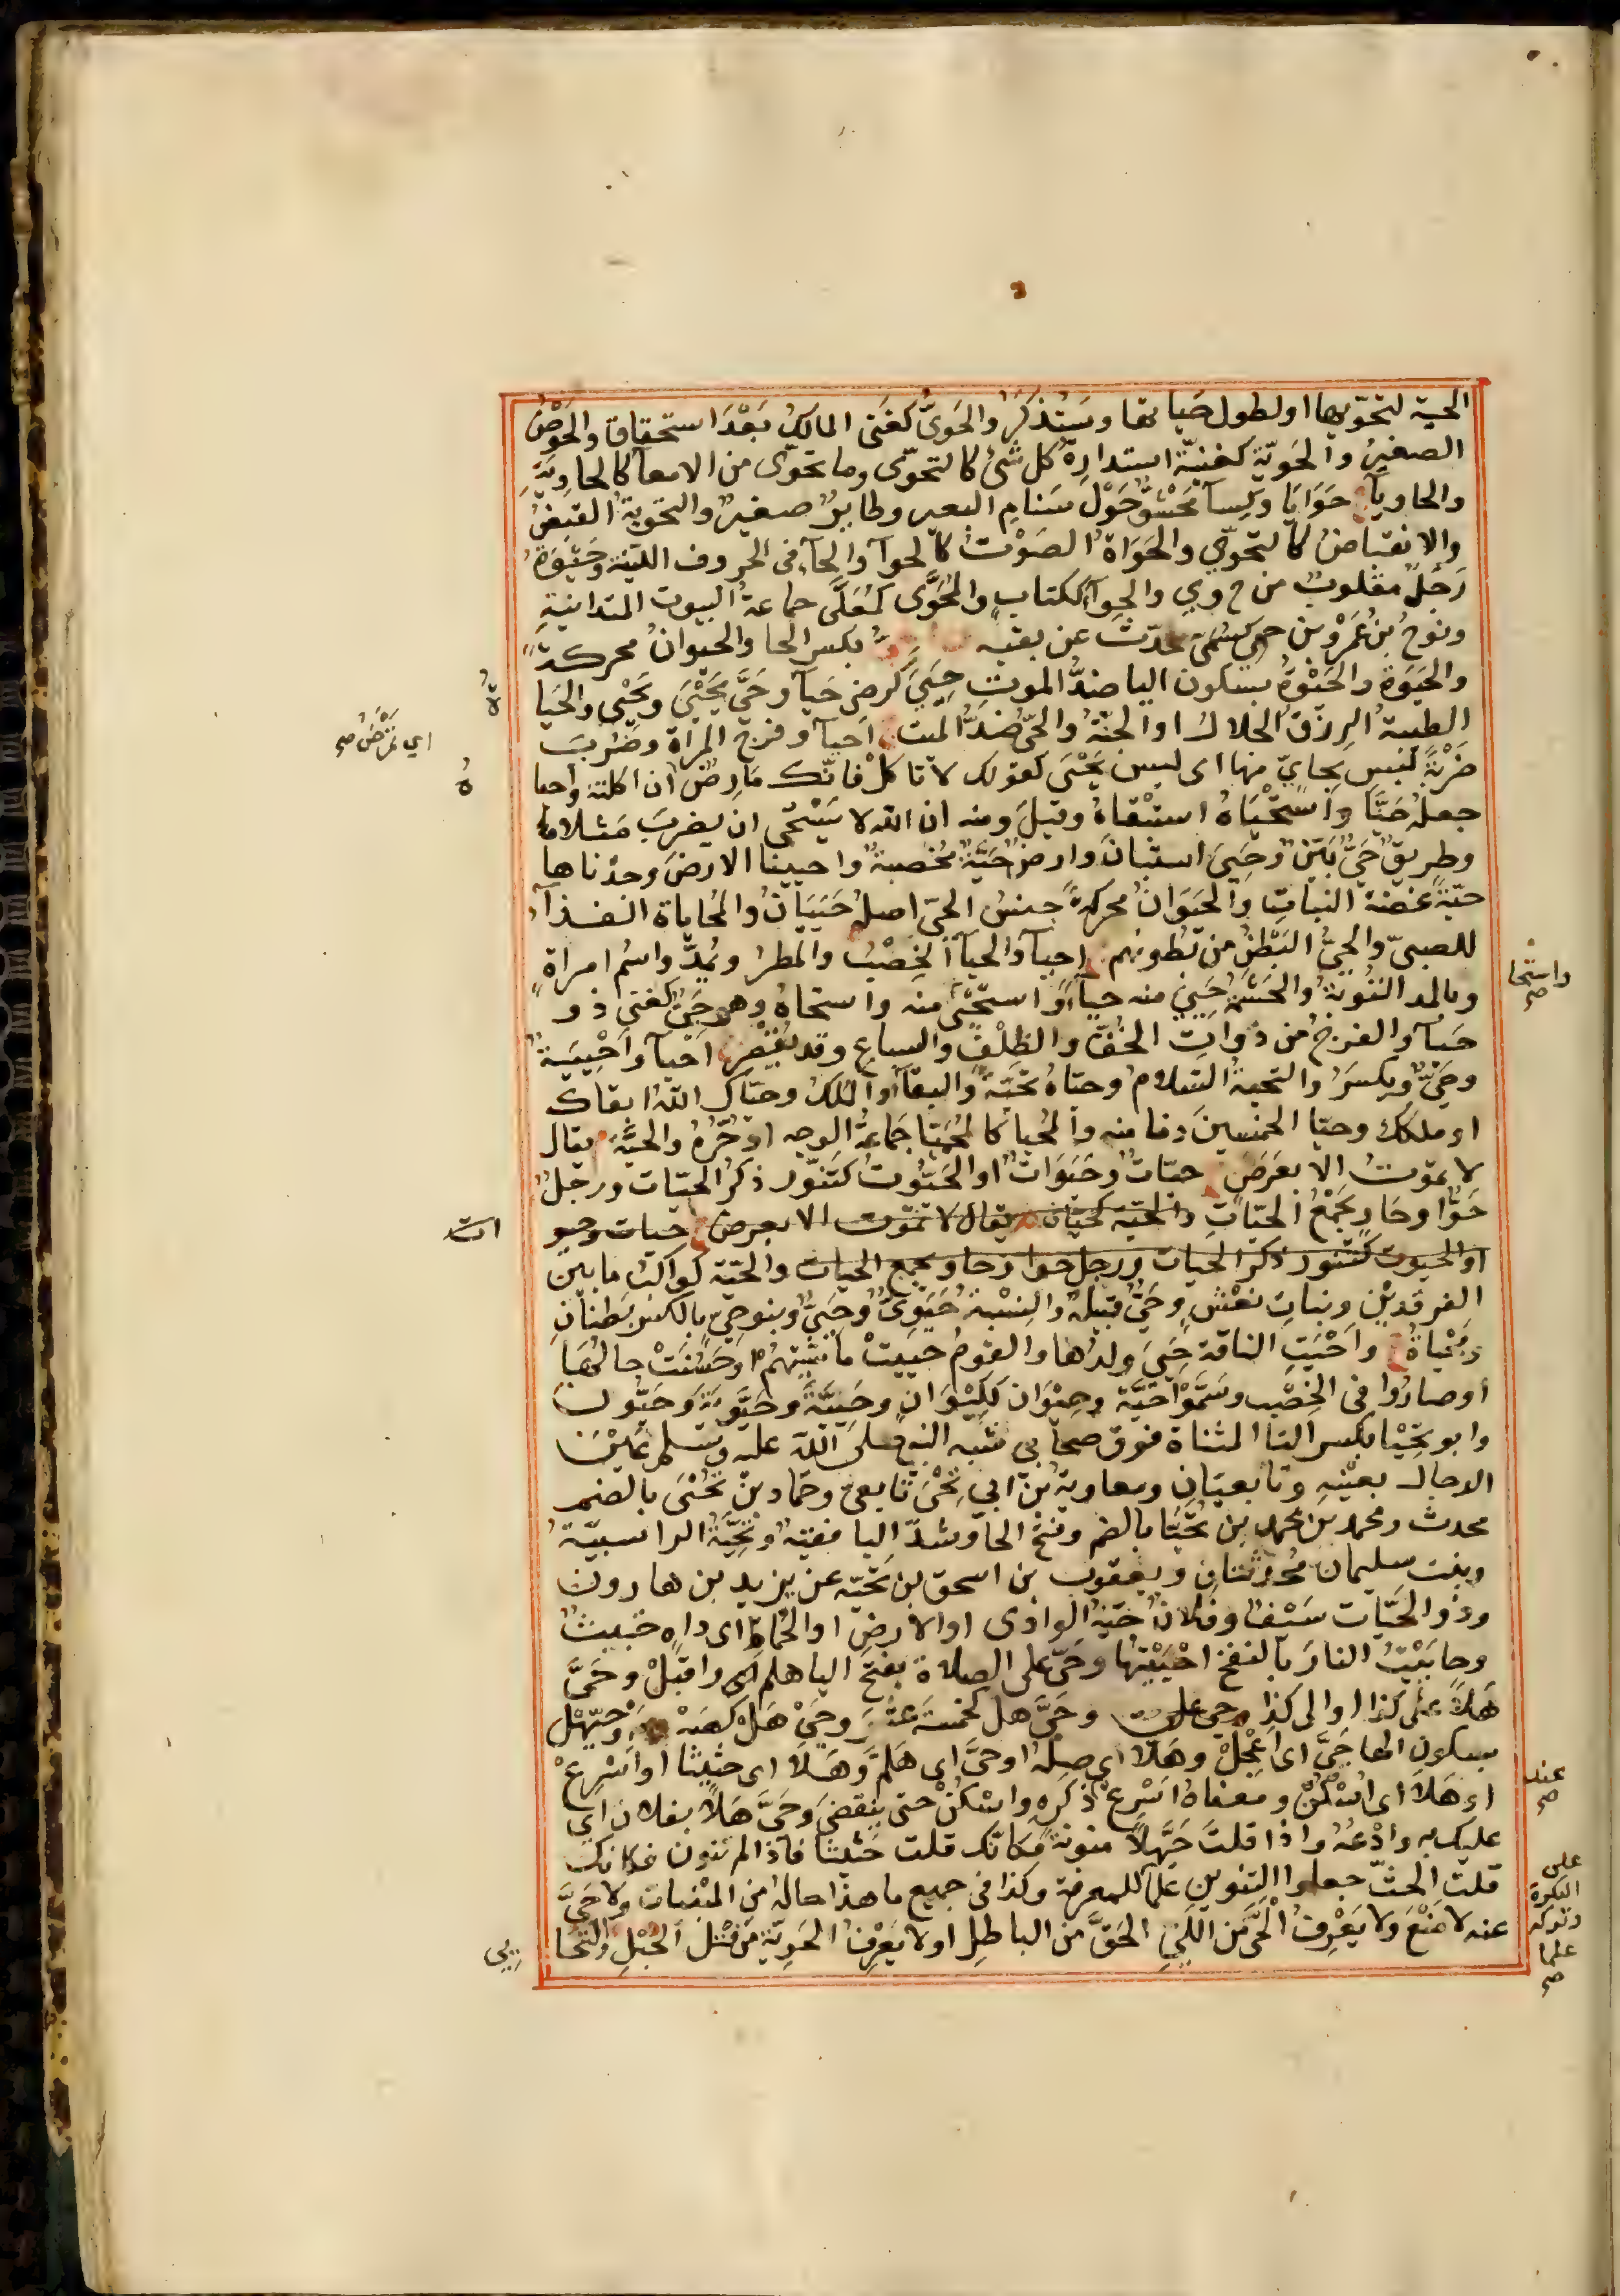 الحية لتحويها او لطول حياتها وسَتُذكَرُ والحَوِىُّ كغَنِى المالكُ بَعْدَ استحقاق والحَوْضُ
الصغيرُ والحَوِيَّة كغنيّة استدارة كل شئ كالتحوّى وما تحوّى من الامعا كالحاوِيَةِ
والحاويآء حَوَايَا وكِسآ محشُوٌّ حَوْلَ سَنام البعير وطايرٌ صغيرٌ والتحوية القبضُ
والانقباضُ كالتحوّي والحَوَاةُ الصَوْتُ كالحوآ والحآء فى الحروف اللينة وحَيْوَةُ
رَجُلٌ مقلوبٌ من ح وي والحِوآ ككتاب والمُحَوَّى كمُعَلَّى جماعةُ البيوت المتدانيةِ
ونوحُ بنُ عَمْرو بن حى كسُمَىّ محدّث عن بقيه بكسر الحا والحيوانُ محركةً
والحَيَوةُ والحَيْوْةُ بسكون اليا ضدُّ الموتِ حَيِىَ كرضِىَ حَيآ وحَىَّ يَحْيَىَ ويَحْيِى والحَيَا
ةُ
الطيبةُ الرزقُ الحلالُ او الجنّةُ والحىُّ ضدُّ الميت احيآ وفرج المرأة وضُرِبَ
ضَرْبَةً ليس بحايٍّ منها اى ليس يَحْيَى كقولك لا تاكل فانّك مَارِضٌ ان اكلته واحيا
اي تَمْرَضُ صح
هُ
جعلهُ حَيًّا واسْتَحْيَاهُ استَبْقاهُ وقيلَ ومنه ان الله لا يَسْتَحْى ان يضربَ مَثَلا ما
وطريقٌ حَىٌّ بَيِّنٌ وحَيِىَ استبانَ وارضٌ حَيَّةٌ مُخْصبةٌ واحيينا الارضَ وجدناها
حيّةً غضّةَ النباتِ والحَيَوَانُ محركةً جنسُ الحىّ اصلُهُ حَيَيَانُ والمُحَاياة الغذآء
للصبىّ والحىُّ البَطْنُ من بُطُونهم احيآ والحيآ الخِصْبُ والمطرُ ويُمدُّ واسْمُ امراةٍ
وبالمد التَّوْبَةُ والحِشْمَةُ حَيِىَ منه حيآءً واستَحْيَى منه واستحاهُ وهو حَيِىٌّ كغَنِى ذو
واستحا صح
حَيآ والفرجُ من ذَواتِ الخُفِّ والظِلْف والسباع وقد يُقْصَرُ احْيآ واَحْيِيَةٌ
وحَىٌّ ويكسَرُ والتحيةُ السَّلامُ وحيّاهُ تَحِيَّةً والبقآ والمُلْك وحيّاك اللهُ ابقاك
او ملكك وحيّا الخمسينَ دَنا منه والمُحيا كالحُمَيّا جَمَاعَةُ الوجه او حُرُّهُ والحَيَّةُ يقال
لا يموتُ الا بعَرَضٍ حيّاتٌ وحَيَوَاتٌ او الحَيُّوتُ كتَنُّور ذكَرُ الحيّات ورَجُلٌ
حَوَّا وحَاوٍ يَجْمَعُ الحيّاتِ والحيّة كحيّان يقال لا تموت الا بعرض حيات وحيو
ات
او الحيوت كتنور ذكر الحيات ورجل حوا وحاو يجمع الحيات والحيّة كواكبُ ما بين
الفرقدَيْن وبناتِ نَعْشٍ وحَىٌّ قبيلةٌ والنِسْبةُ حَيَوِىٌّ وحَيِىٌّ وبنو حِىٍّ بالكسر بَطْنانِ
ومَحْياةُ واَحْيَتِ الناقة حَيِىَ ولدُها والقومُ حَيِيَتْ ماشِيَتُهُم او حَسُنَتْ حالُهَا
او صارُوا فى الخِصْب وسَمَّوْا حَيَّةَ وحِيْوَان ككِيْوَان وحُيَيَّةَ وحَيُّويَةَ وحَيُّون
وابو تِحْيَا بكسر التا المثناة فوق صحابى شبّه النبى صلى الله عليه وسلم عَيْنَ
الدجال بعَيْنهِ وتابعيّانِ ومعاويةُ بنُ ابى تِحْيَى تابعىٌّ وحمّاد بنُ تُحْيَى بالضم
محدث ومحمد بن محمد بن تُحَيَّا بالضم وفتح الحآ وشدّ اليا فقيهٌ وتُحَيَّةُ الراسبيّةُ
وبنت سليمان مُحَدِّثتانِ ويعقوب بن اسحق بن تَحيّة عن يزيد بن هارون
وذو الحَيّات سَيْفٌ وفلانٌ حَيّةُ الوادى او الارضِ او الحُماط اى داهٍ خبيثٌ
وحايَيْتُ النارَ بالنفخ احْيَيْتُها وحَىَّ على الصلاة بفتح اليا هلم اى واقبلْ وحَىَّ
هَلًا على كذا او الى كذا وحى على وحَىَّ هل كخمسةَ عَشَرَ وحَىْ هَلْ كصَهْ وحَيَّهْل
بسكون الها حَىَّ اى اعجِلْ وهَلا اى صِلْهُ او حىَّ اى هَلُمَّ وهَلَا اى حثيثًا او اَسْرِعْ
او هَلا اى اسْكُنْ ومعناهُ اَسْرِعْ ذكره واسْكُنْ حتى ينقضىَ وحَىَّ هَلًا بفلان اى
عند صح
عليك به وادْعُهُ واذا قلتَ حَيَّهلًا منونةً فكانّك قلت حَثيثًا فاذا لم تنون فكانك
قلتَ الحثَّ جعلوا التنوين علما للمعرفة وكذا فى جميع ما هذا حاله من المبنيات ولا حَىَّ
على النكرة وتركه علما صح
عنه لا مَنْعَ ولا يَعْرِفُ الحىَّ مَن اللَّىِ الحَقَّ من الباطلِ او لا يَعْرِفُ الحَوِيّة من فتل الحَبْلِ والتحا
يى